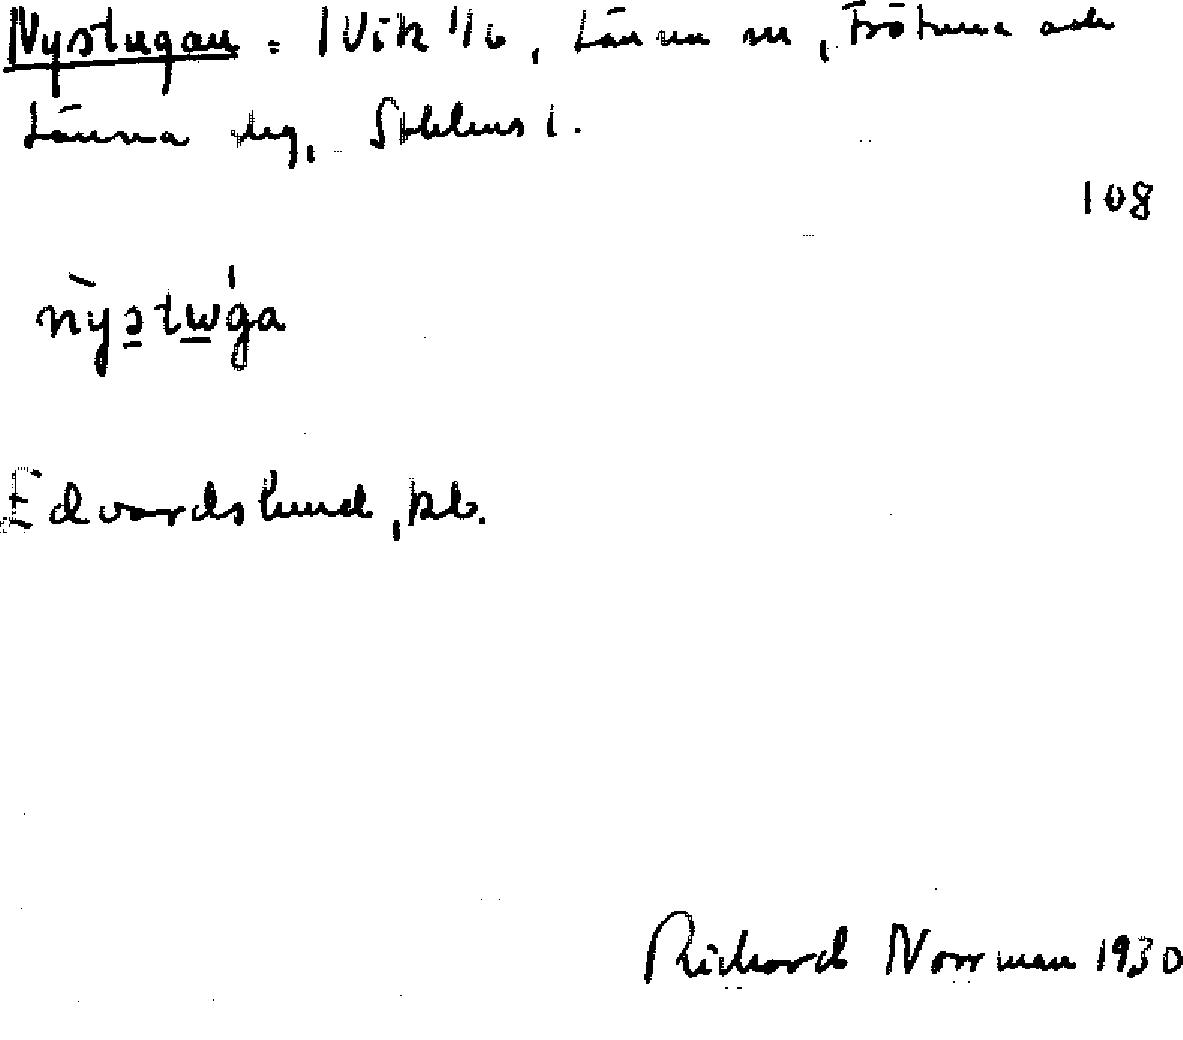 Nystugan = 1 Vik 1/6, Länna sn, Frötuna och
Länna skg, Sthlms l.
108
nỳstw̲'ga
Edvardslund, kb.
Richard Norrman 1930